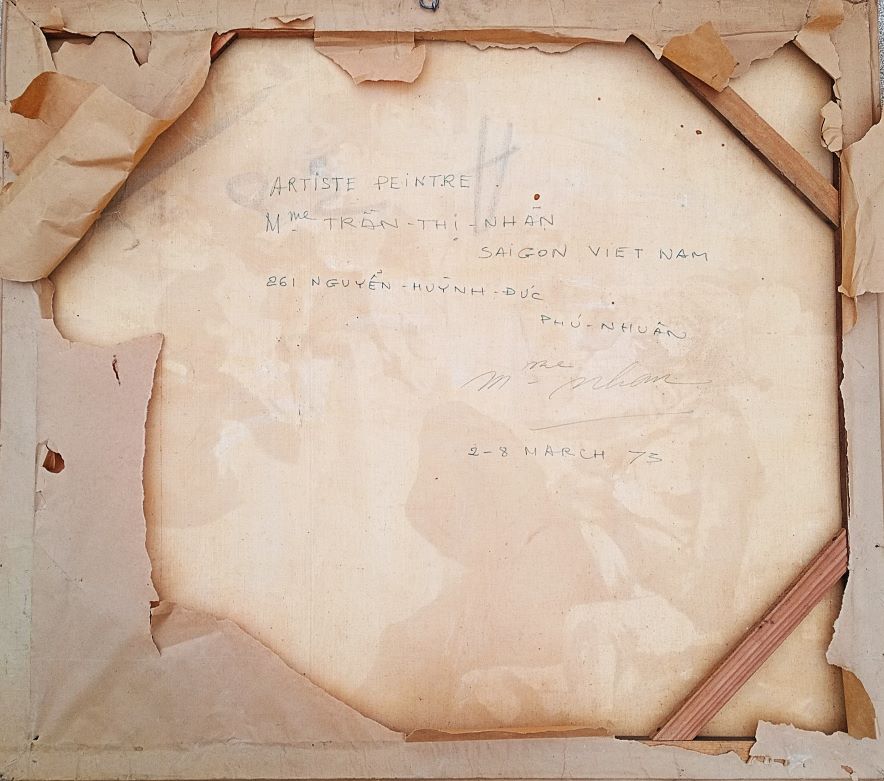 ARTISTE PEINTRE
Mme TRẦN-THỊ-NHÀN
SAIGON VIET NAM
261 NGUYỄN-HUỲNH-ĐỨC
PHÚ-NHUẬN
Mme Nhan
2-8 MARCH 73